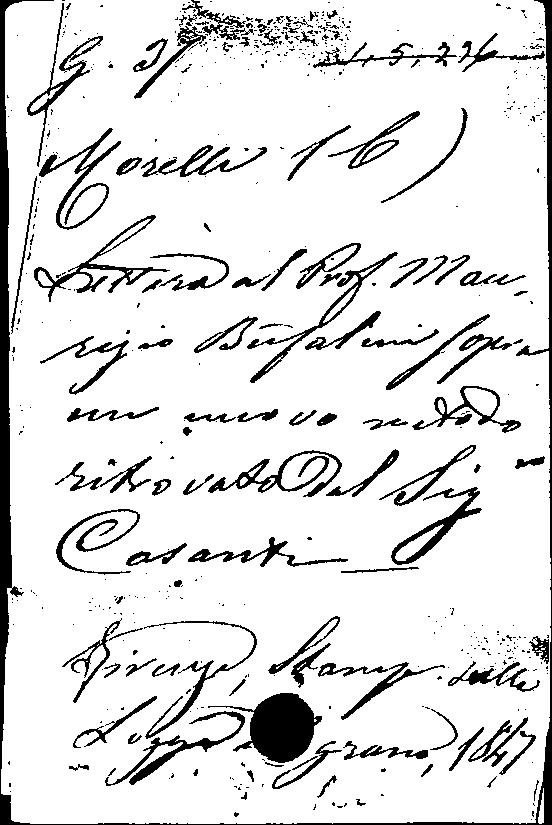 G. 37 1, 5, 236
Morelli (C)
Lettera al Prof. Mau-
rizio Bufalini sopra
un nuovo metodo
ritrovato dal Sig.
Casanti
Firenze, Stamp. sulle
Logge grano, 1847